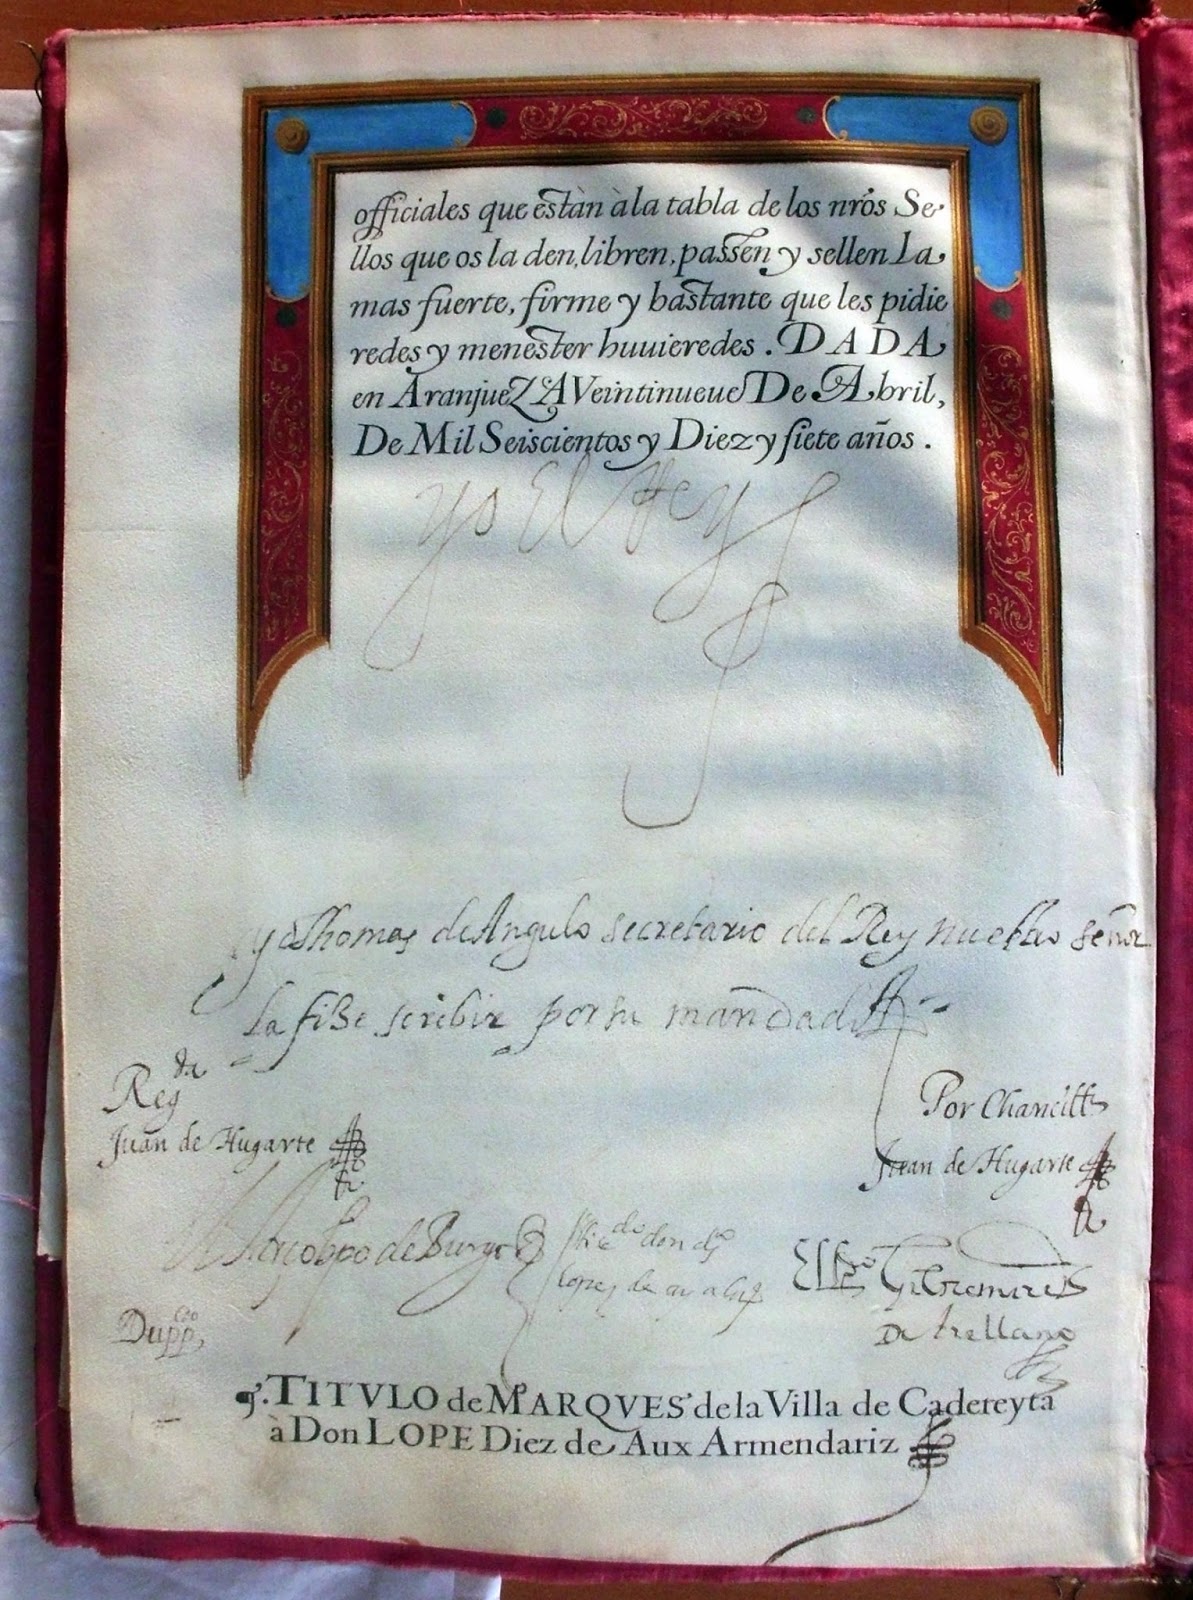 officiales que están à la tabla de los nr̃os Se-
llos que os la den, libren, passen y sellen La
mas fuerte, firme y bastante que les pidie
redes y menester huuieredes. DADA
en Aranjuez A Veintinueue De Abril,
De Mil Seiscientos y Diez y siete años.
yo El Rey
yo Thomas de Angulo secretario del Rey nuestro señor
la fize screbir por su mandado
Regda
Juan de Hugarte
Por Chancillr
Juan de Hugarte
Jacobpo de Burgos
El Ldo don dgo
lopez de ayala
El Ldo Gil Remirez
De Arellano
Duppcdo
TITVLO de MARQVES de la Villa de Cadereyta
à Don LOPE Diez de Aux Armendariz